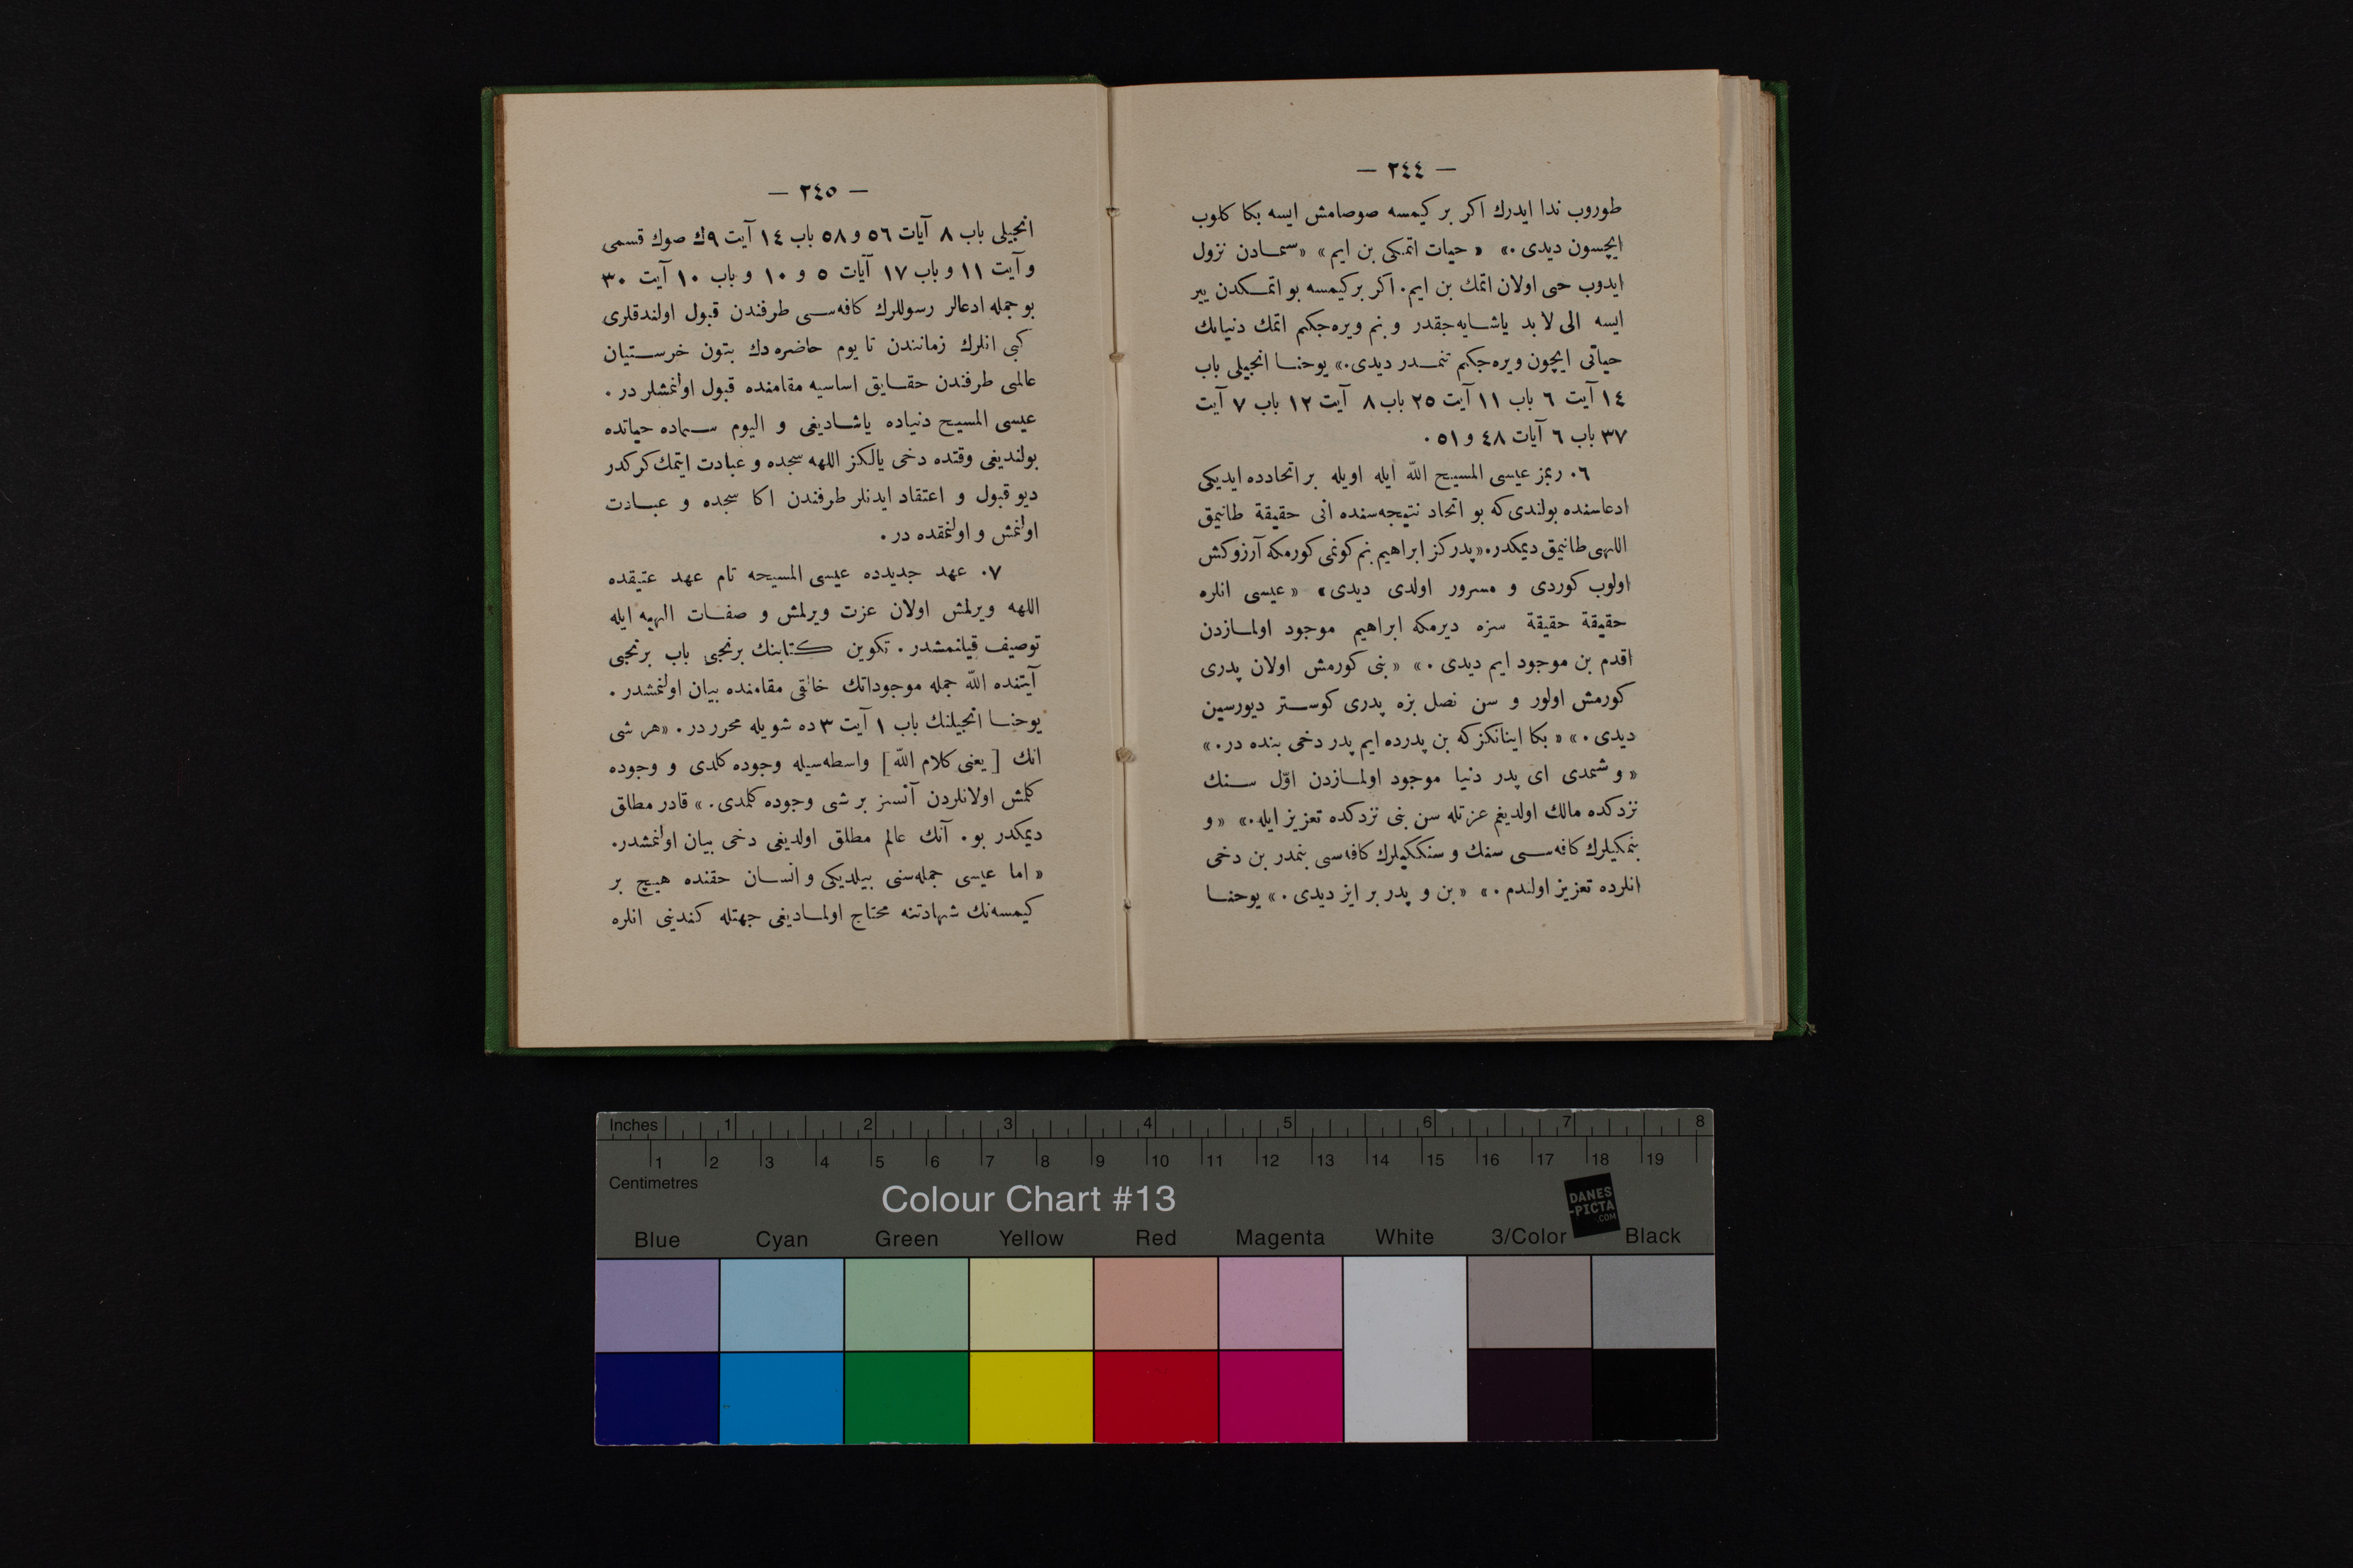 — ٢٤٤ —
طوروب ندا ايدرك اكر بر كيمسه صوصامش ايسه بكا كلوب
ايچسون ديدى .» « حيات اتمكى بن ايم» «سمادن نزول
ايدوب حى اولان اتمك بن ايم. اكر بركيمسه بو اتمكدن يير
ايسه الى لا بد ياشايه‌جقدر و بنم ويره‌جكم اتمك دنيانك
حياتى ايچون ويره‌جكم تنمدر ديدى.» يوحنا انجيلى باب
١٤ آيت ٦ باب ١١ آيت ٢٥ باب ٨ آيت ١٢ باب ٧ آيت
٣٧ باب ٦ آيات ٤٨ و ٥١ .
٦. ربمز عيسى المسيح اللّه ايله اويله بر اتحادده ايديكى
ادعاسنده بولندى كه بو اتحاد نتيجه‌سنده انى حقيقة طانيمق
اللهى طانيمق ديمكدر. «پدركز ابراهيم بنم كونمى كورمكه آرزوكش
اولوب كوردى و مسرور اولدى ديدى» «عيسى انلره
حقيقة حقيقة سزه ديرمكه ابراهيم موجود اولمازدن
اقدم بن موجود ايم ديدى .» «بنى كورمش اولان پدرى
كورمش اولور و سن نصل بزه پدرى كوستر ديورسين
ديدى .» « بكا اينانكز كه بن پدرده ايم پدر دخى بنده در.»
« و شمدى اى پدر دنيا موجود اولمازدن اوّل سنك
نزدكده مالك اولديغم عزتله سن بنى نزدكده تعزيز ايله.» «و
بنمكيلرك كافه‌سى سنك و سنككيلرك كافه‌سى بنمدر بن دخى
انلرده تعزيز اولندم .» «بن و پدر بر ايز ديدى .» يوحنا
— ٢٤٥ —
انجيلى باب ٨ آيات ٥٦ و ٥٨ باب ١٤ آيت ٩ك صوك قسمى
و آيت ١١ و باب ١٧ آيات ٥ و ١٠ و باب ١٠ آيت ٣٠
بو جمله ادعالر رسوللرك كافه‌سى طرفندن قبول اولندقلرى
كبى انلرك زمانندن تا يوم حاضره دك بتون خرستيان
عالمى طرفندن حقايق اساسيه مقامنده قبول اولنمشلر در .
عيسى المسيح دنياده ياشاديغى و اليوم سماده حياتده
بولنديغى وقتده دخى يالكز اللهه سجده و عبادت ايتمك كركدر
ديو قبول و اعتقاد ايدنلر طرفندن اكا سجده و عبادت
اولنمش و اولنمقده در .
٧. عهد جديدده عيسى المسيحه تام عهد عتيقده
اللهه ويرلمش اولان عزت ويرلمش و صفات الهيه ايله
توصيف قيلنمشدر . تكوين كتابنك برنجى باب برنجى
آيتنده اللّه جمله موجوداتك خالقى مقامنده بيان اولنمشدر .
يوحنا انجيلنك باب ١ آيت ٣ ده شويله محرر در . «هر شى
انك [ يعنى كلام اللّه ] واسطه‌سيله وجوده كلدى و وجوده
كلمش اولانلردن آنسز بر شى وجوده كلمدى. » قادر مطلق
ديمكدر بو . آنك عالم مطلق اولديغى دخى بيان اولنمشدر.
« اما عيسى جمله‌سنى بيلديكى و انسان حقنده هيچ بر
كيمسه‌نك شهادتنه محتاج اولماديغى جهتله كندينى انلره
Inches 1 2 3 4 5 6 7 8
1 2 3 4 5 6 7 8 9 10 11 12 13 14 15 16 17 18 19
Centimetres
Colour Chart #13
DANES
-PICTA
.COM
Blue Cyan Green Yellow Red Magenta White 3/Color Black